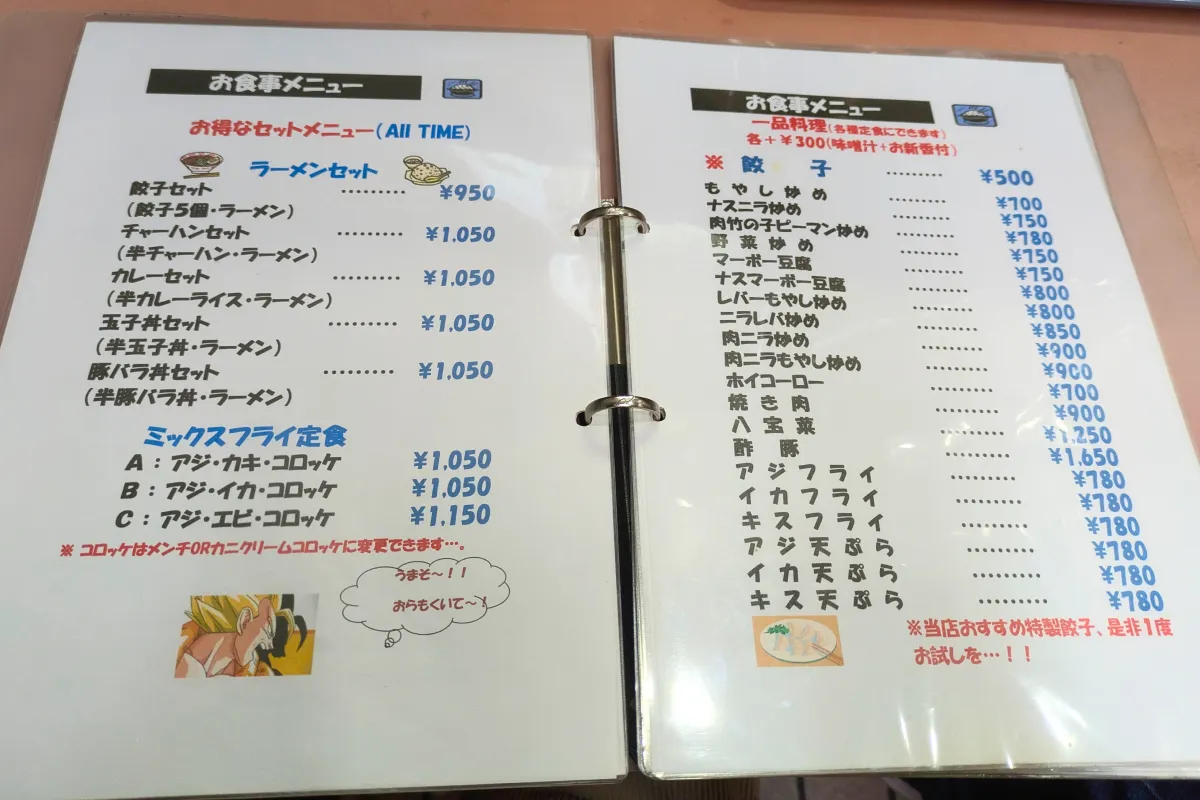 お食事メニュー
お得なセットメニュー(All TIME)
ラーメンセット
餃子セット ‥‥‥‥‥ ¥950
(餃子5個・ラーメン)
チャーハンセット ‥‥‥‥‥ ¥1,050
(半チャーハン・ラーメン)
カレーセット ‥‥‥‥‥ ¥1,050
(半カレーライス・ラーメン)
玉子丼セット ‥‥‥‥‥ ¥1,050
(半玉子丼・ラーメン)
豚バラ丼セット ‥‥‥‥‥ ¥1,050
(半豚バラ丼・ラーメン)
ミックスフライ定食
A：アジ・カキ・コロッケ ¥1,050
B：アジ・イカ・コロッケ ¥1,050
C：アジ・エビ・コロッケ ¥1,150
※ コロッケはメンチORカニクリームコロッケに変更できます…。
うまそ〜！！
おらもくいて〜！
お食事メニュー
一品料理(各種定食にできます)
各＋¥300(味噌汁＋お新香付)
※ 餃 子 ‥‥‥‥ ¥500
もやし炒め ‥‥‥‥ ¥700
ナスニラ炒め ‥‥‥‥ ¥750
肉竹の子ピーマン炒め ‥‥‥‥ ¥780
野 菜 炒 め ‥‥‥‥ ¥750
マーボー豆腐 ‥‥‥‥ ¥750
ナスマーボー豆腐 ‥‥‥‥ ¥800
レバーもやし炒め ‥‥‥‥ ¥800
ニラレバ炒め ‥‥‥‥ ¥850
肉ニラ炒め ‥‥‥‥ ¥900
肉ニラもやし炒め ‥‥‥‥ ¥900
ホイコーロー ‥‥‥‥ ¥700
焼 き 肉 ‥‥‥‥ ¥900
八 宝 菜 ‥‥‥‥ ¥1,250
酢 豚 ‥‥‥‥ ¥1,650
ア ジ フ ラ イ ‥‥‥‥ ¥780
イ カ フ ラ イ ‥‥‥‥ ¥780
キ ス フ ラ イ ‥‥‥‥ ¥780
ア ジ 天 ぷ ら ‥‥‥‥ ¥780
イ カ 天 ぷ ら ‥‥‥‥ ¥780
キ ス 天 ぷ ら ‥‥‥‥ ¥780
※当店おすすめ特製餃子、是非1度
お試しを…！！